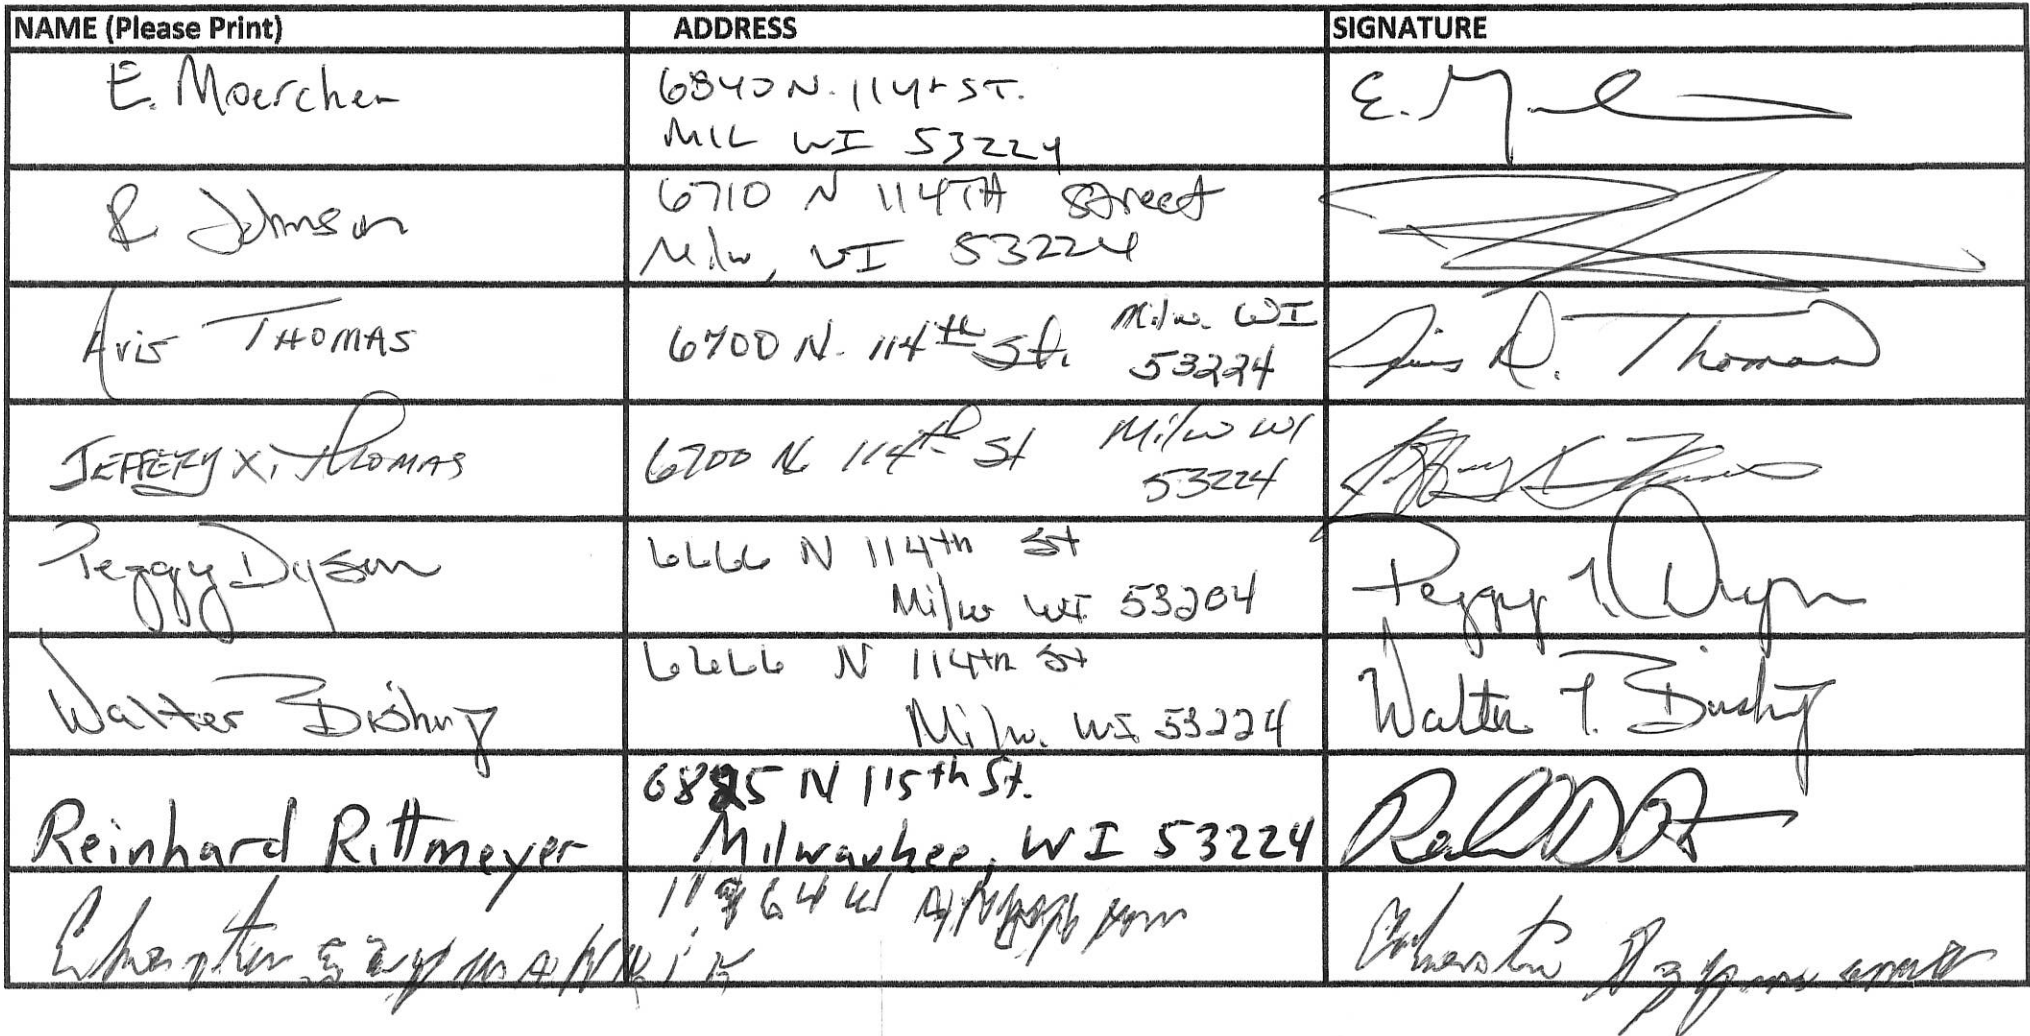 NAME (Please Print) ADDRESS SIGNATURE
E. Moerchen
6840 N. 114th ST.
MIL WI 53224
E. M
R Johnson
6710 N 114TH Street
Milw, WI 53224
Avis THOMAS
6700 N. 114th St. Milw. WI
53224
Avis R. Thomas
JEFFERY X. THOMAS
6700 N 114th St Milw WI
53224
Jeffery X Thomas
Peggy Dyson
6666 N 114th St
Milw WI 53204
Peggy T. Dyson
Walter Bishop
6666 N 114th St
Milw. WI 53224
Walter T. Bishop
Reinhard Rittmeyer
6825 N 115th St.
Milwaukee, WI 53224
W